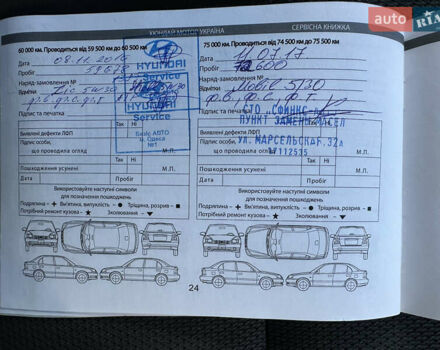 ХЮНДАЙ МОТОР УКРАЇНА
СЕРВІСНА КНИЖКА
60 000 км. Проводиться від 59 500 км до 60 500 км
Дата 08.11.2016
Пробіг 59670
Наряд-замовлення №
Відмітки Zic 5W30
ф.в. ф.с. ф.т
Підпис та печатка
HYUNDAI
Service
HYUNDAI
Service
БАЗІС АВТО
м. Одеса
№1
Так Ні
Виявлені дефекти ЛФП
Підпис особи,
що проводила огляд М.П.
Так Ні
Пошкодження усунені М.П.
Дата Пробіг
Використовуйте наступні символи
для позначення пошкоджень
Подряпина + Вм'ятина, випуклість Тріщина, розрив
Потрібний ремонт кузова ★ Сколювання
75 000 км. Проводиться від 74 500 км до 75 500 км
Дата 11.07.17
Пробіг 600
Наряд-замовлення №
Відмітки Mobil 5/30
ф.в, ф.с, ф.т
Підпис та печатка
СТО "СФИНКС-
ПУНКТ ЗАМЕНЫ МАСЕЛ
УЛ. МАРСЕЛЬСКАЯ, 32А
7112535
Так Ні
Виявлені дефекти ЛФП
Підпис особи,
що проводила огляд М.П.
Так Ні
Пошкодження усунені М.П.
Дата Пробіг
Використовуйте наступні символи
для позначення пошкоджень
Подряпина + Вм'ятина, випуклість Тріщина, розрив
Потрібний ремонт кузова ★ Сколювання
24
AUTO
RIA